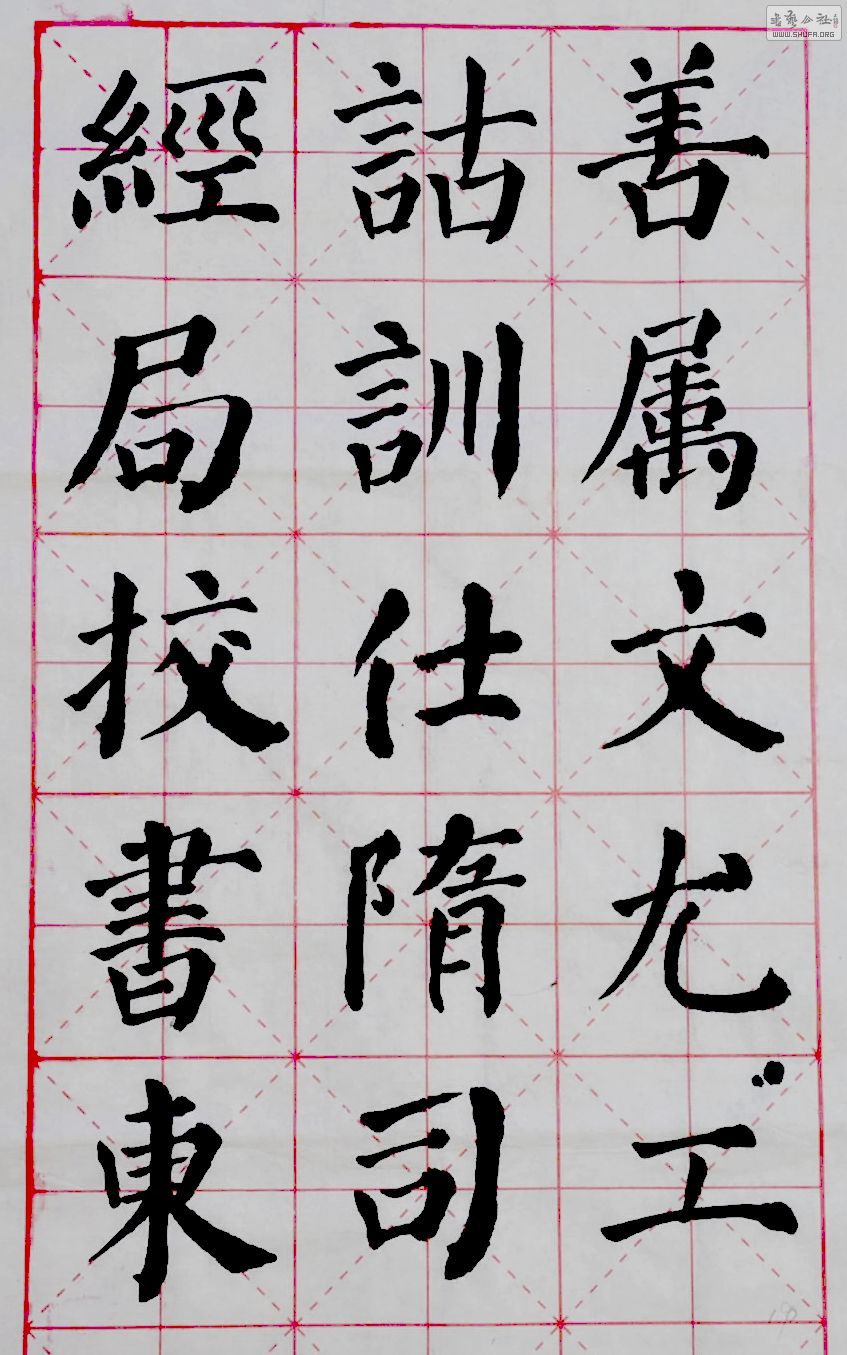 善属文尤工
詁訓仕隋司
經局挍書東
書艺公社
WWW.SHUFA.ORG